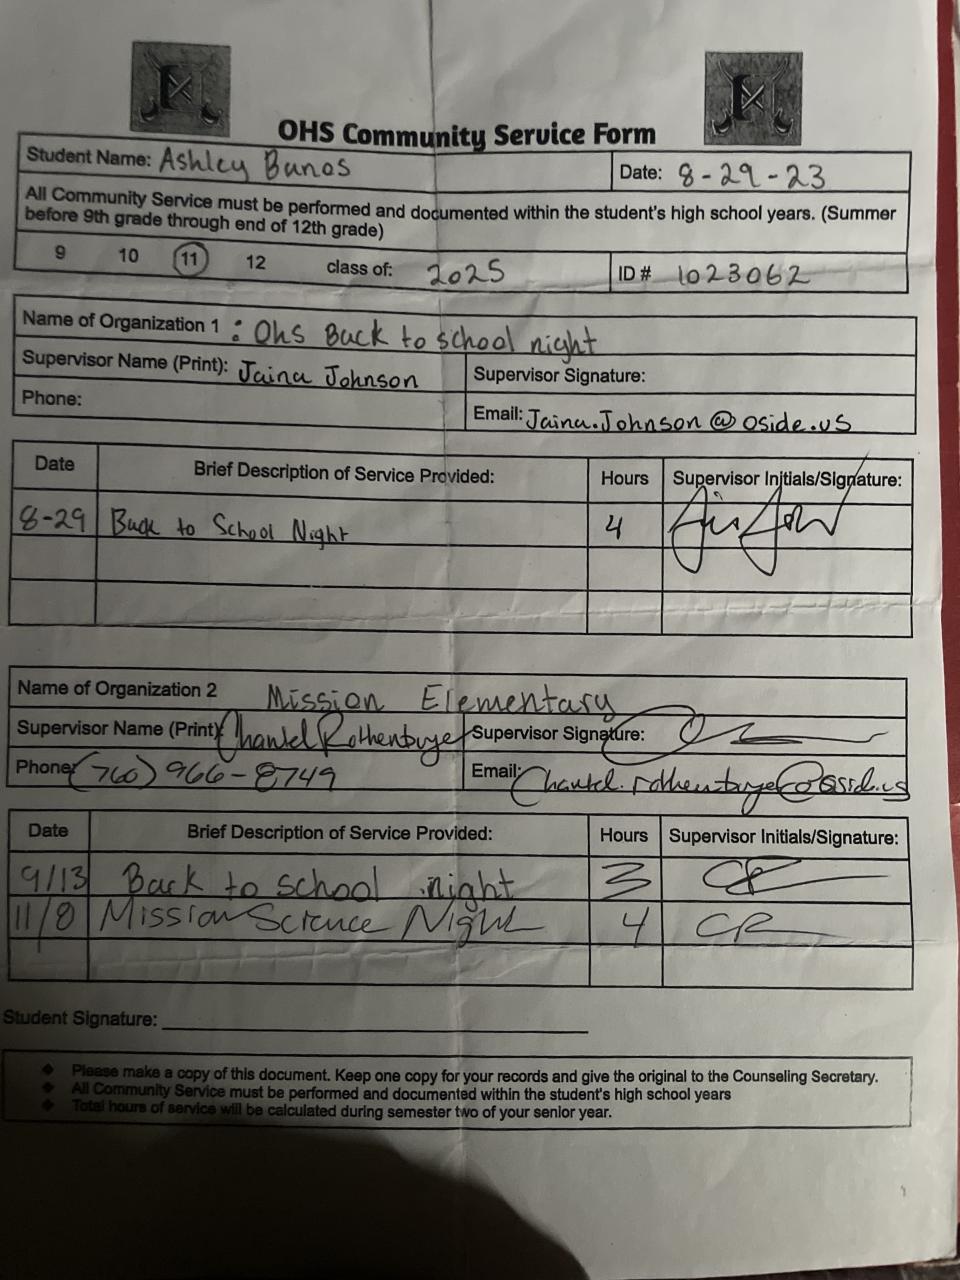 OHS Community Service Form
Student Name: Ashley Banos Date: 8-29-23
All Community Service must be performed and documented within the student's high school years. (Summer
before 9th grade through end of 12th grade)
9 10 11 12 class of: 2025 ID # 1023062
Name of Organization 1 : Ohs Back to school night
Supervisor Name (Print): Jaina Johnson Supervisor Signature:
Phone: Email: Jaina.Johnson@oside.us
Date Brief Description of Service Provided: Hours Supervisor Initials/Signature:
8-29 Back to School Night 4
Name of Organization 2 Mission Elementary
Supervisor Name (Print) Chantel Rothenbuye Supervisor Signature:
Phone: (760) 966-8749 Email:
Date Brief Description of Service Provided: Hours Supervisor Initials/Signature:
9/13 Back to school night 3 CR
11/8 Mission Science Night 4 CR
Student Signature:
◆ Please make a copy of this document. Keep one copy for your records and give the original to the Counseling Secretary.
◆ All Community Service must be performed and documented within the student's high school years
◆ Total hours of service will be calculated during semester two of your senior year.